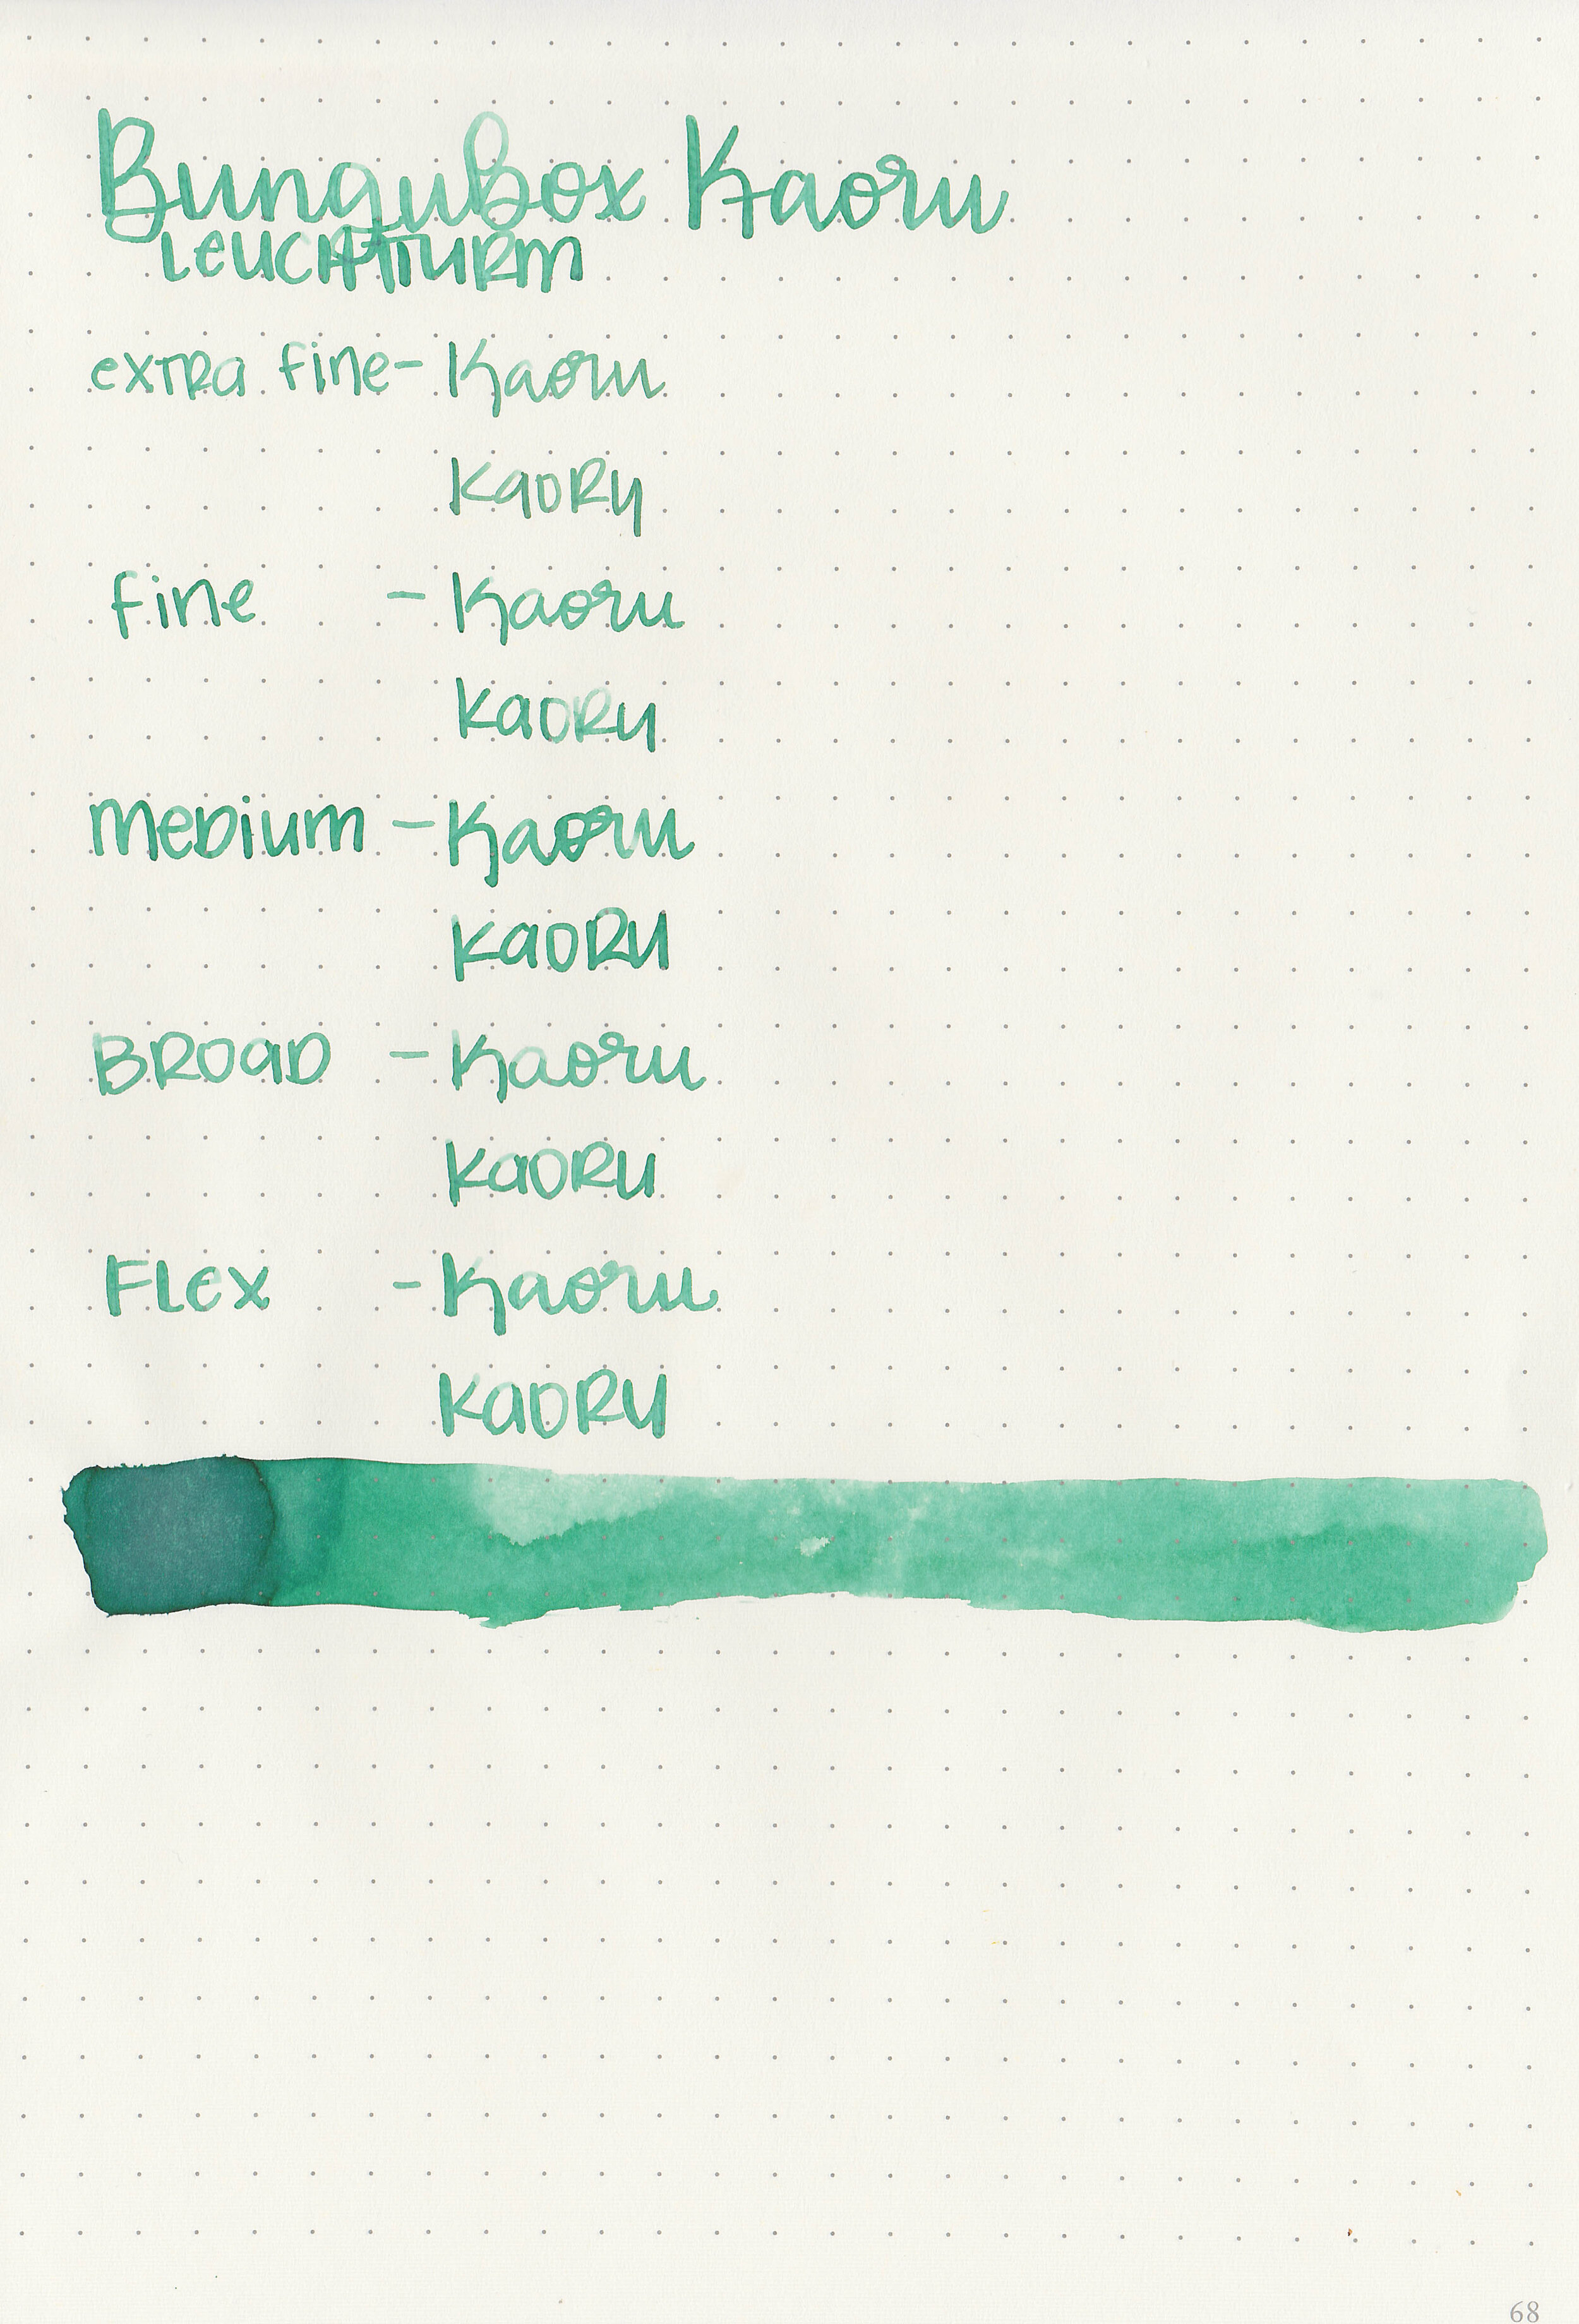 Bungubox Kaoru
LEUCHTTURM
extra fine - Kaoru
KaORu
fine - Kaoru
KaORu
MEDIUM - Kaoru
KaORu
BROAD - Kaoru
KaORu
FLex - Kaoru
KaORu
68